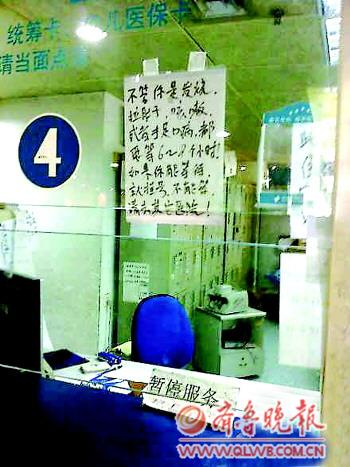 统筹卡
儿医保卡
请当面点
4
不管你是发烧，
拉肚子，咳嗽，
或者手足口病，都
要等6-8个小时！
如果你能等待，
就挂号，不能等
请去其它医院！
暂停服务
齐鲁晚报
WWW.QLWB.COM.CN